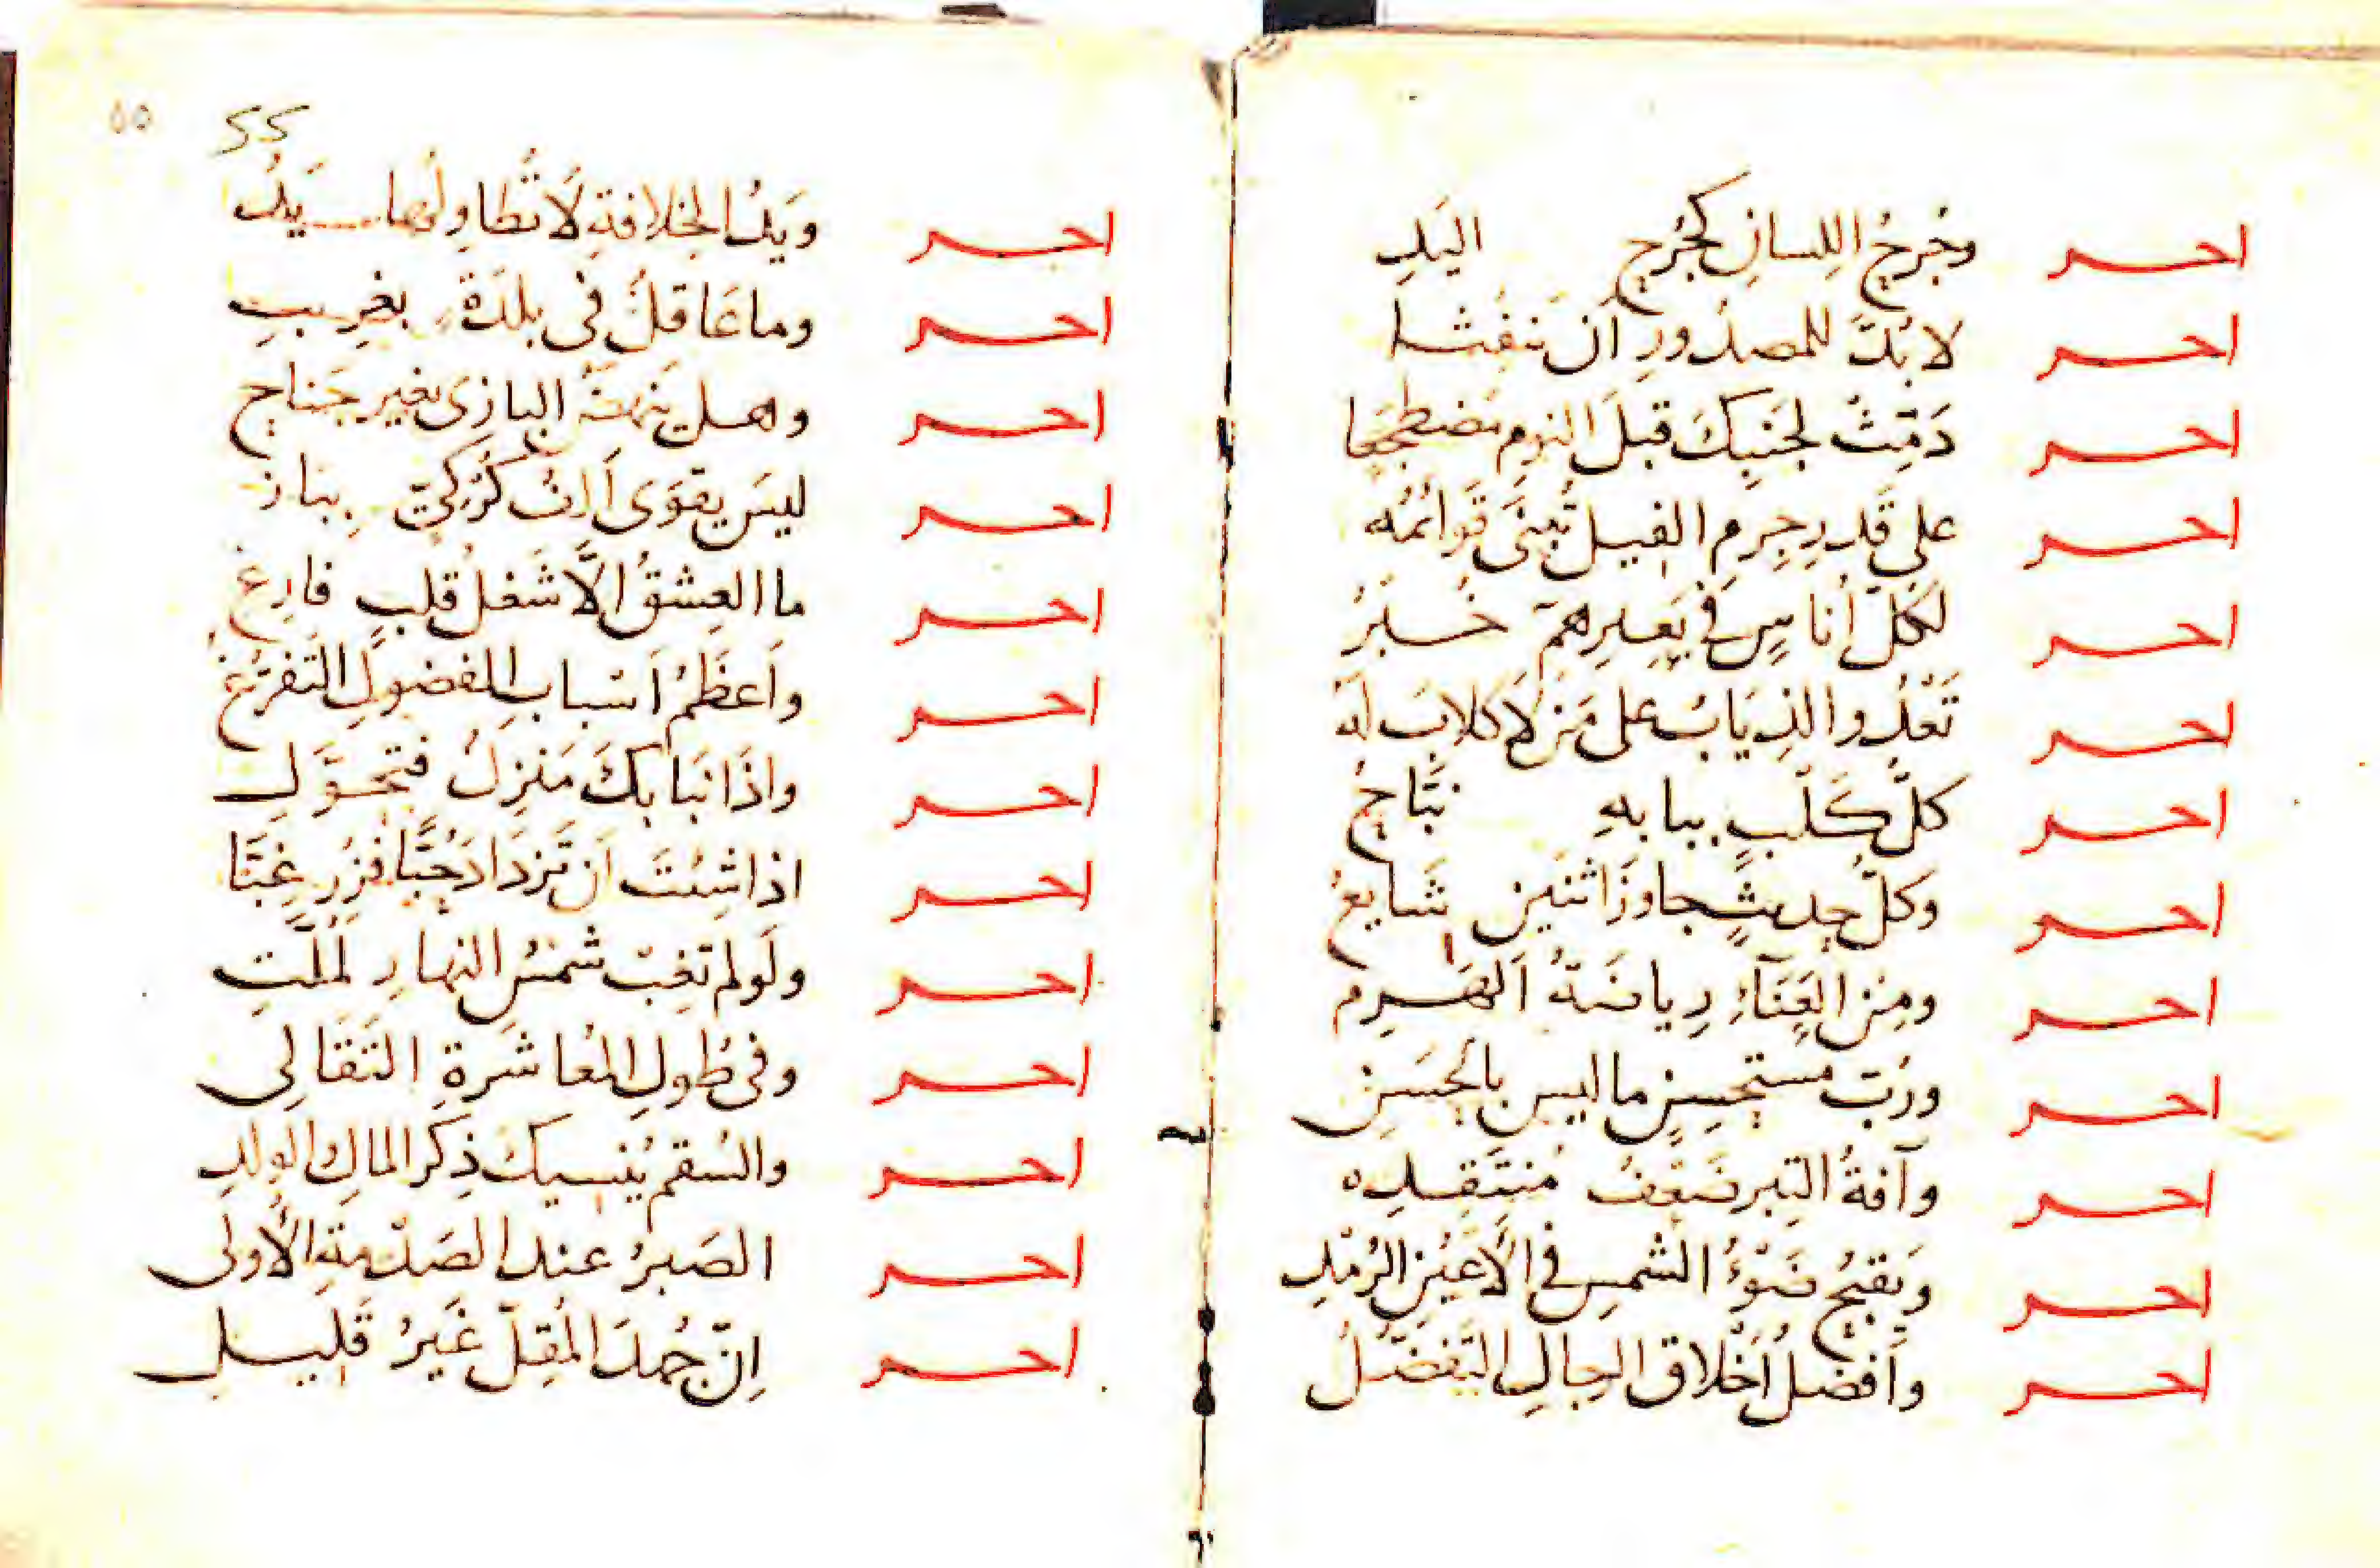 احـر وجُرحُ اللِسانِ كجُرحِ اليَدِ
احـر لا بُدَّ للمصدُورِ اَن يَنفُثا
احـر دَمِّث لجَنبِكَ قبلَ النومِ مضطجَعا
احـر على قَدرِ جِرمِ الفيل تُبنَى قَوائمُه
احـر لكلّ اُناسٍ فى بَعيرِهمْ خُبْرُ
احـر تَعْدُوا الذِيَابُ على مَن لا كلابَ لَه
احـر كلُّ كَلْبٍ ببابهِ نبَّاحُ
احـر وكلّ حديثٍ جاوزَ اثنَين شَايعُ
احـر ومِن العَنَآءِ رِياضَةُ الهَرِم
احـر ورُبّ مستحسِنٍ ما ليس بالحَسَنِ
احـر وآفةُ التِبرِ ضَعْفُ مُنتَقِدِه
احـر وَيَقبُحُ ضَوْءُ الشمسِ فى الاَعيُنِ الرُمْدِ
احـر واَفضلُ اَخْلاق الرجالِ التَفَضّلُ
٥٥
55
احـر ويَدُ الخِلافةِ لَا تُطاوِلُها يَدُ
احـر وما عَاقلٌ فى بلدَةٍ بغريبِ
احـر وهل ينهَضُ البازى بغير جَناحِ
احـر ليسَ يقوَى اَلفُ كُرْكىّ ببازِ
احـر ما العِشقُ الَّا شَغلُ قلبٍ فارِغ
احـر واَعظَمُ اَسْبابِ الفضولِ التَفَرّغُ
احـر واذَا نبَا بكَ مَنزِلٌ فتحوَّلِ
احـر اذا شِئتَ اَن تَزدَادَ حُبًّا فَزُر غِبَّا
احـر ولَو لم تَغِبْ شَمسُ النهارِ لَمُلَّتِ
احـر وفى طُولِ المُعاشَرةِ التَقَالِى
احـر والسُقم يُنسيكَ ذِكرَ المالِ والولدِ
احـر الصَبرُ عند الصَدْمةِ الاُولى
احـر اِنّ جُهدَ المُقِلّ غَيرُ قَليلِ